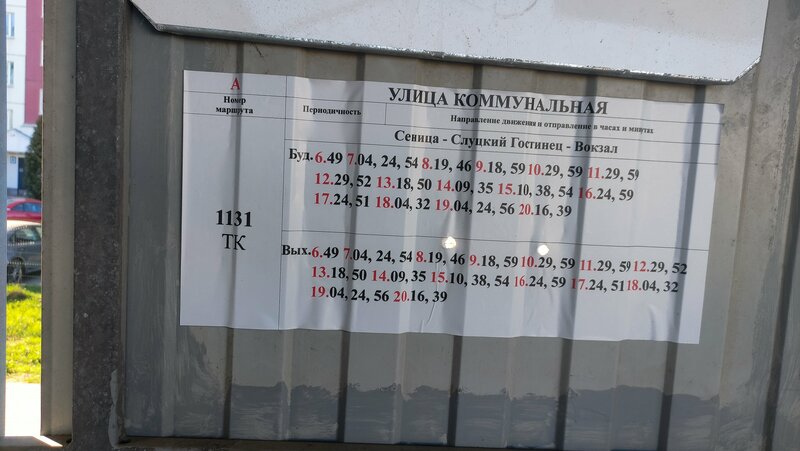 А
Номер
маршрута
УЛИЦА КОММУНАЛЬНАЯ
Периодичность
Направление движения и отправление в часах и минутах
Сеница - Слуцкий Гостинец - Вокзал
1131
ТК
Буд. 6.49 7.04, 24, 54 8.19, 46 9.18, 59 10.29, 59 11.29, 59
12.29, 52 13.18, 50 14.09, 35 15.10, 38, 54 16.24, 59
17.24, 51 18.04, 32 19.04, 24, 56 20.16, 39
Вых. 6.49 7.04, 24, 54 8.19, 46 9.18, 59 10.29, 59 11.29, 59 12.29, 52
13.18, 50 14.09, 35 15.10, 38, 54 16.24, 59 17.24, 51 18.04, 32
19.04, 24, 56 20.16, 39